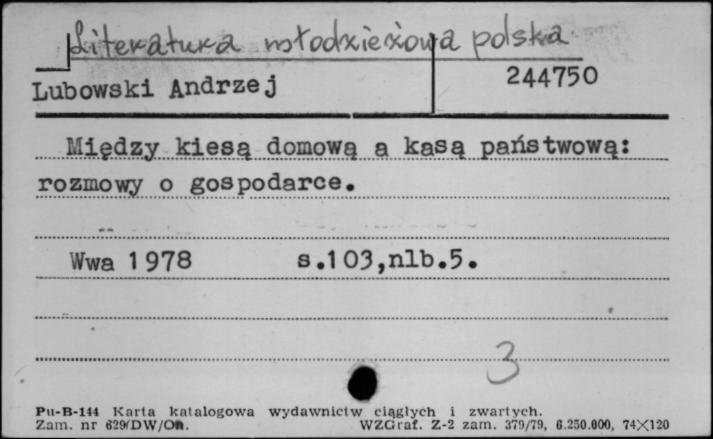 Literatura młodzieżowa polska
Lubowski Andrzej 244750
Między kiesą domową a kasą państwową:
rozmowy o gospodarce.
Wwa 1978 s.103,nlb.5.
3
Pu-B-144 Karta katalogowa wydawnictw ciągłych i zwartych.
Zam. nr 629/DW/On. WZGraf. Z-2 zam. 379/79, 6.250.000, 74×120